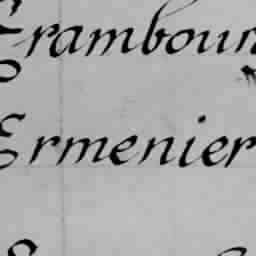 Frambour
Ermenier